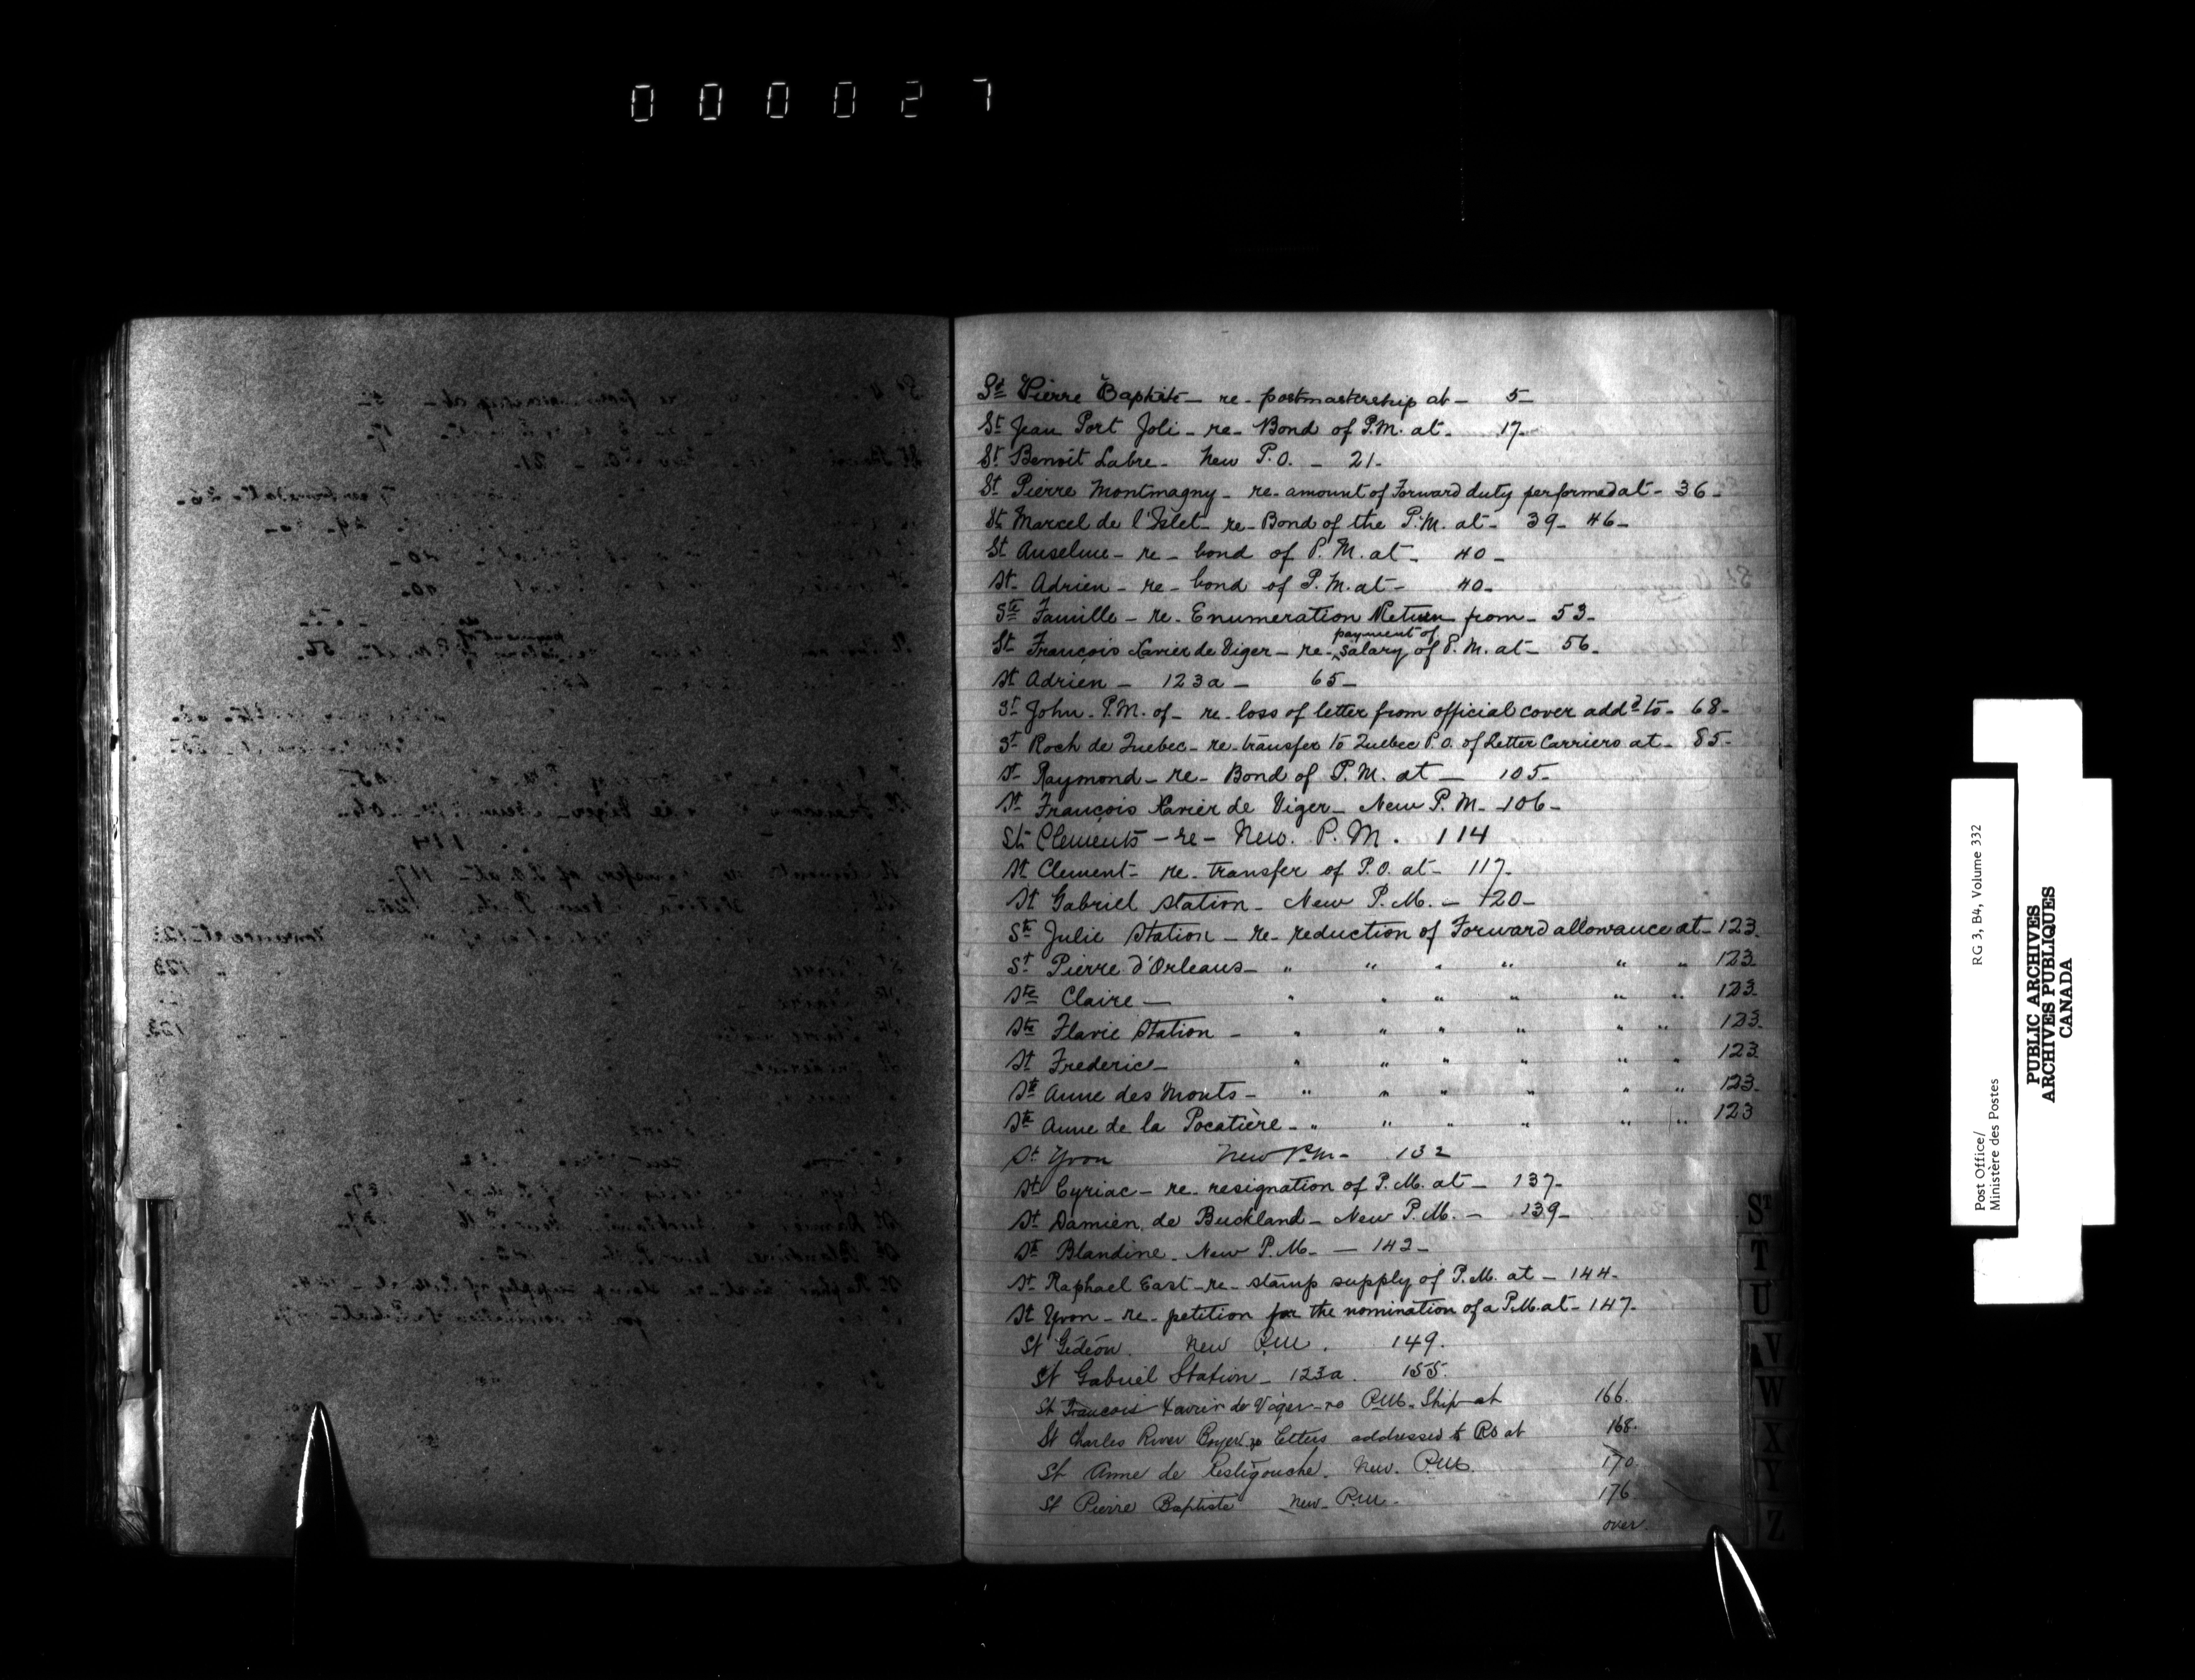 000027
St Pierre Baptiste - re - postmastership at - 5-
St Jean Port Joli - re - Bond of P.M. at - 17-
St Benoit Labre - New P.O. - 21-
St Pierre Montmagny - re - amount of Forward duty performed at - 36-
St Marcel de l'Islet - re - Bond of the P.M. at - 39 - 46-
St Anselme - re - bond of P.M. at - 40-
St Adrien - re - bond of P.M. at - 40-
Ste Famille - re - Enumeration Return from - 53-
payment of
St François Xavier de Viger - re - ^ salary of P.M. at - 56-
St Adrien - 123a - 65-
St John - P.M. of - re - loss of letter from official cover addd to - 68-
St Roch de Quebec - re - transfer to Quebec P.O. of Letter Carriers at - 85-
St Raymond - re - Bond of P.M. at - 105-
St François Xavier de Viger - New P.M. - 106-
St Clements - re - New. P.M. 114
St Clement - re - transfer of P.O. at - 117-
St Gabriel Station - New P.M. - 120-
Ste Julie Station - re - reduction of Forward allowance at - 123-
St Pierre d'Orleans - " " " " " " 123-
Ste Claire - " " " " " " 123-
Ste Flavie Station - " " " " " " 123-
St Frederic - " " " " " " 123-
Ste Anne des Monts - " " " " " " 123-
Ste Anne de la Pocatière - " " " " " " 123
St Yvon New P.M. - 132
St Cyriac - re - resignation of P.M. at - 137-
St Damien de Buckland - New P.M. - 139-
Ste Blandine - New P.M. - 142-
St Raphael East - re - stamp supply of P.M. at - 144-
St Yvon - re - petition for the nomination of a P.M. at - 147-
St Gédéon. New P.M. 149.
St Gabriel Station - 123a. 155.
St François Xavier de Viger - re P.M. Ship at 166.
St Charles River Boyer re letters addressed to PO at 168.
St Anne de Restigouche. New. P.M. 170
St Pierre Baptiste New - P.M. - 176
over
ST
T
U
V
W
X
Y
Z
Post Office/ RG 3, B4, Volume 332
Ministère des Postes
PUBLIC ARCHIVES
ARCHIVES PUBLIQUES
CANADA